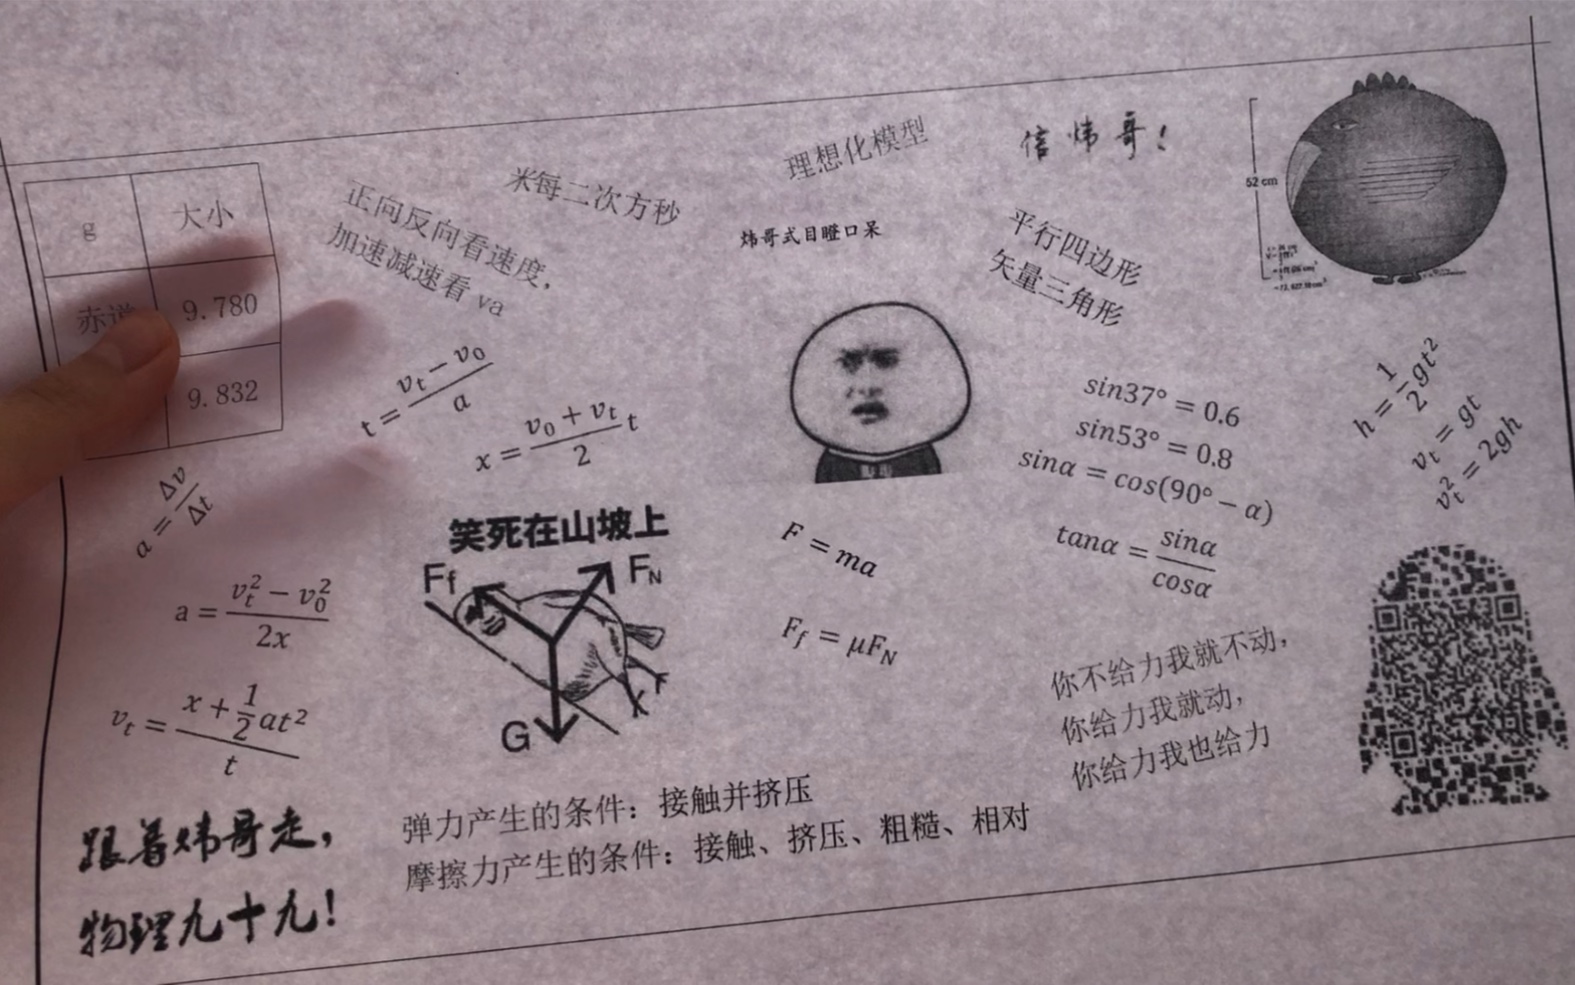 g 大小
赤道 9.780
9.832
正向反向看速度，
加速减速看 va
米每二次方秒
理想化模型
信炜哥！
52 cm
炜哥式目瞪口呆
平行四边形
矢量三角形
t = (v_t − v_0)/a
x = (v_0 + v_t)/2 t
a = Δv/Δt
sin37° = 0.6
sin53° = 0.8
sinα = cos(90° − α)
tanα = sinα/cosα
h = 1/2 gt²
v_t = gt
v_t² = 2gh
笑死在山坡上
F_f F_N
G
F = ma
F_f = μF_N
a = (v_t² − v_0²)/2x
v_t = (x + 1/2 at²)/t
你不给力我就不动，
你给力我就动，
你给力我也给力
跟着炜哥走，
物理九十九！
弹力产生的条件：接触并挤压
摩擦力产生的条件：接触、挤压、粗糙、相对